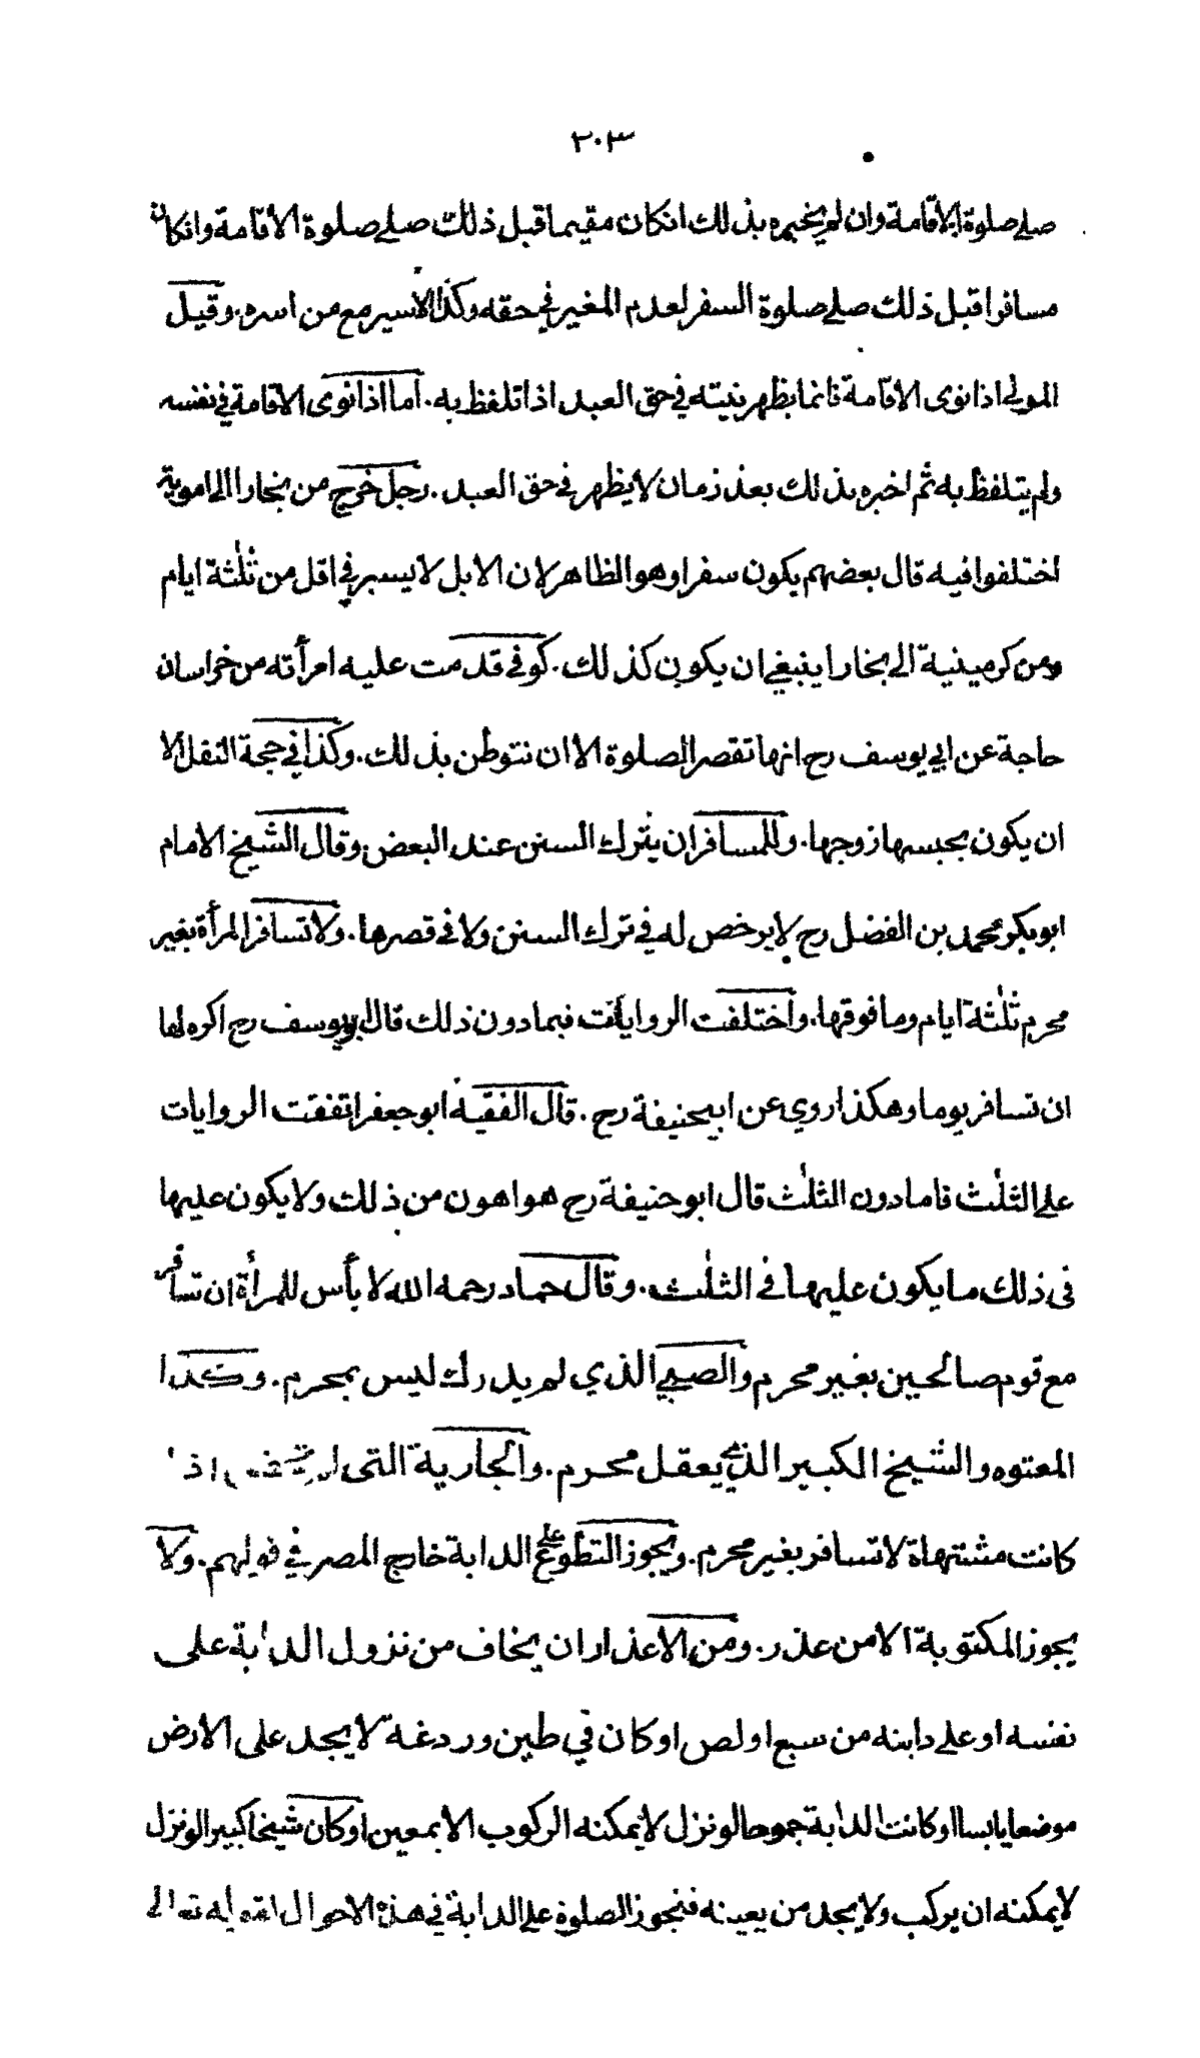 ٢٠٣
صلى صلوة الاقامة وان لم يخبره بذلك انكان مقيما قبل ذلك صلى صلوة الأقامة وانكان
مسافرا قبل ذلك صلى صلوة السفر لعدم المغير في حقه وكذا الأسير مع من اسره. وقيل
المولى اذا نوى الاقامة فانما يظهر نيته في حق العبد اذا تلفظ به. أما اذا نوى الاقامة في نفسه
ولم يتلفظ به ثم اخبره بذلك بعد زمان لا يظهر في حق العبد. رجل خرج من بخارا الى امويه
اختلفوا فيه قال بعضهم يكون سفرا وهو الظاهر لان الابل لا يسير في اقل من ثلثة ايام
ومن كرمينية الى بخارا ينبغي ان يكون كذلك. كوفي قدمت عليه امرأته من خراسان
حاجة عن ابي يوسف رح انها تقصر الصلوة الا ان نتوطن بذلك. وكذا في حجة النفل الا
ان يكون يحبسها زوجها. وللمسافر ان يترك السنن عند البعض. وقال الشيخ الامام
ابو بكر محمد بن الفضل رح لا يرخص له في ترك السنن ولا في قصرها. ولا تسافر المرأة بغير
محرم ثلثة ايام وما فوقها. واختلفت الروايات فيما دون ذلك قال ابو يوسف رح اكره لها
ان تسافر يوما وهكذا روي عن ابيحنيفة رح. قال الفقيه ابو جعفر اتفقت الروايات
على الثلث فاما دون الثلث قال ابو حنيفة رح هو اهون من ذلك ولا يكون عليها
في ذلك ما يكون عليها في الثلث. وقال حماد رحمه الله لا بأس للمرأة ان تسافر
مع قوم صالحين بغير محرم والصبي الذي لم يدرك ليس بمحرم. وكذا
المعتوه والشيخ الكبير الذي يعقل محرم. والجارية التى لم تحض اذا
كانت مشتهاة لا تسافر بغير محرم. ويجوز التطوع على الدابة خارج المصر في قولهم. ولا
يجوز المكتوبة الا من عذر. ومن الاعذار ان يخاف من نزول الدابة على
نفسه او على دابته من سبع او لص او كان في طين وردغة لا يجد على الارض
موضعا يابسا او كانت الدابة جموحا لو نزل لا يمكنه الركوب الا بمعين او كان شيخا كبيرا لو نزل
لا يمكنه ان يركب ولا يجد من يعينه فتجوز الصلوة على الدابة في هذه الاحوال لقوله تعالى